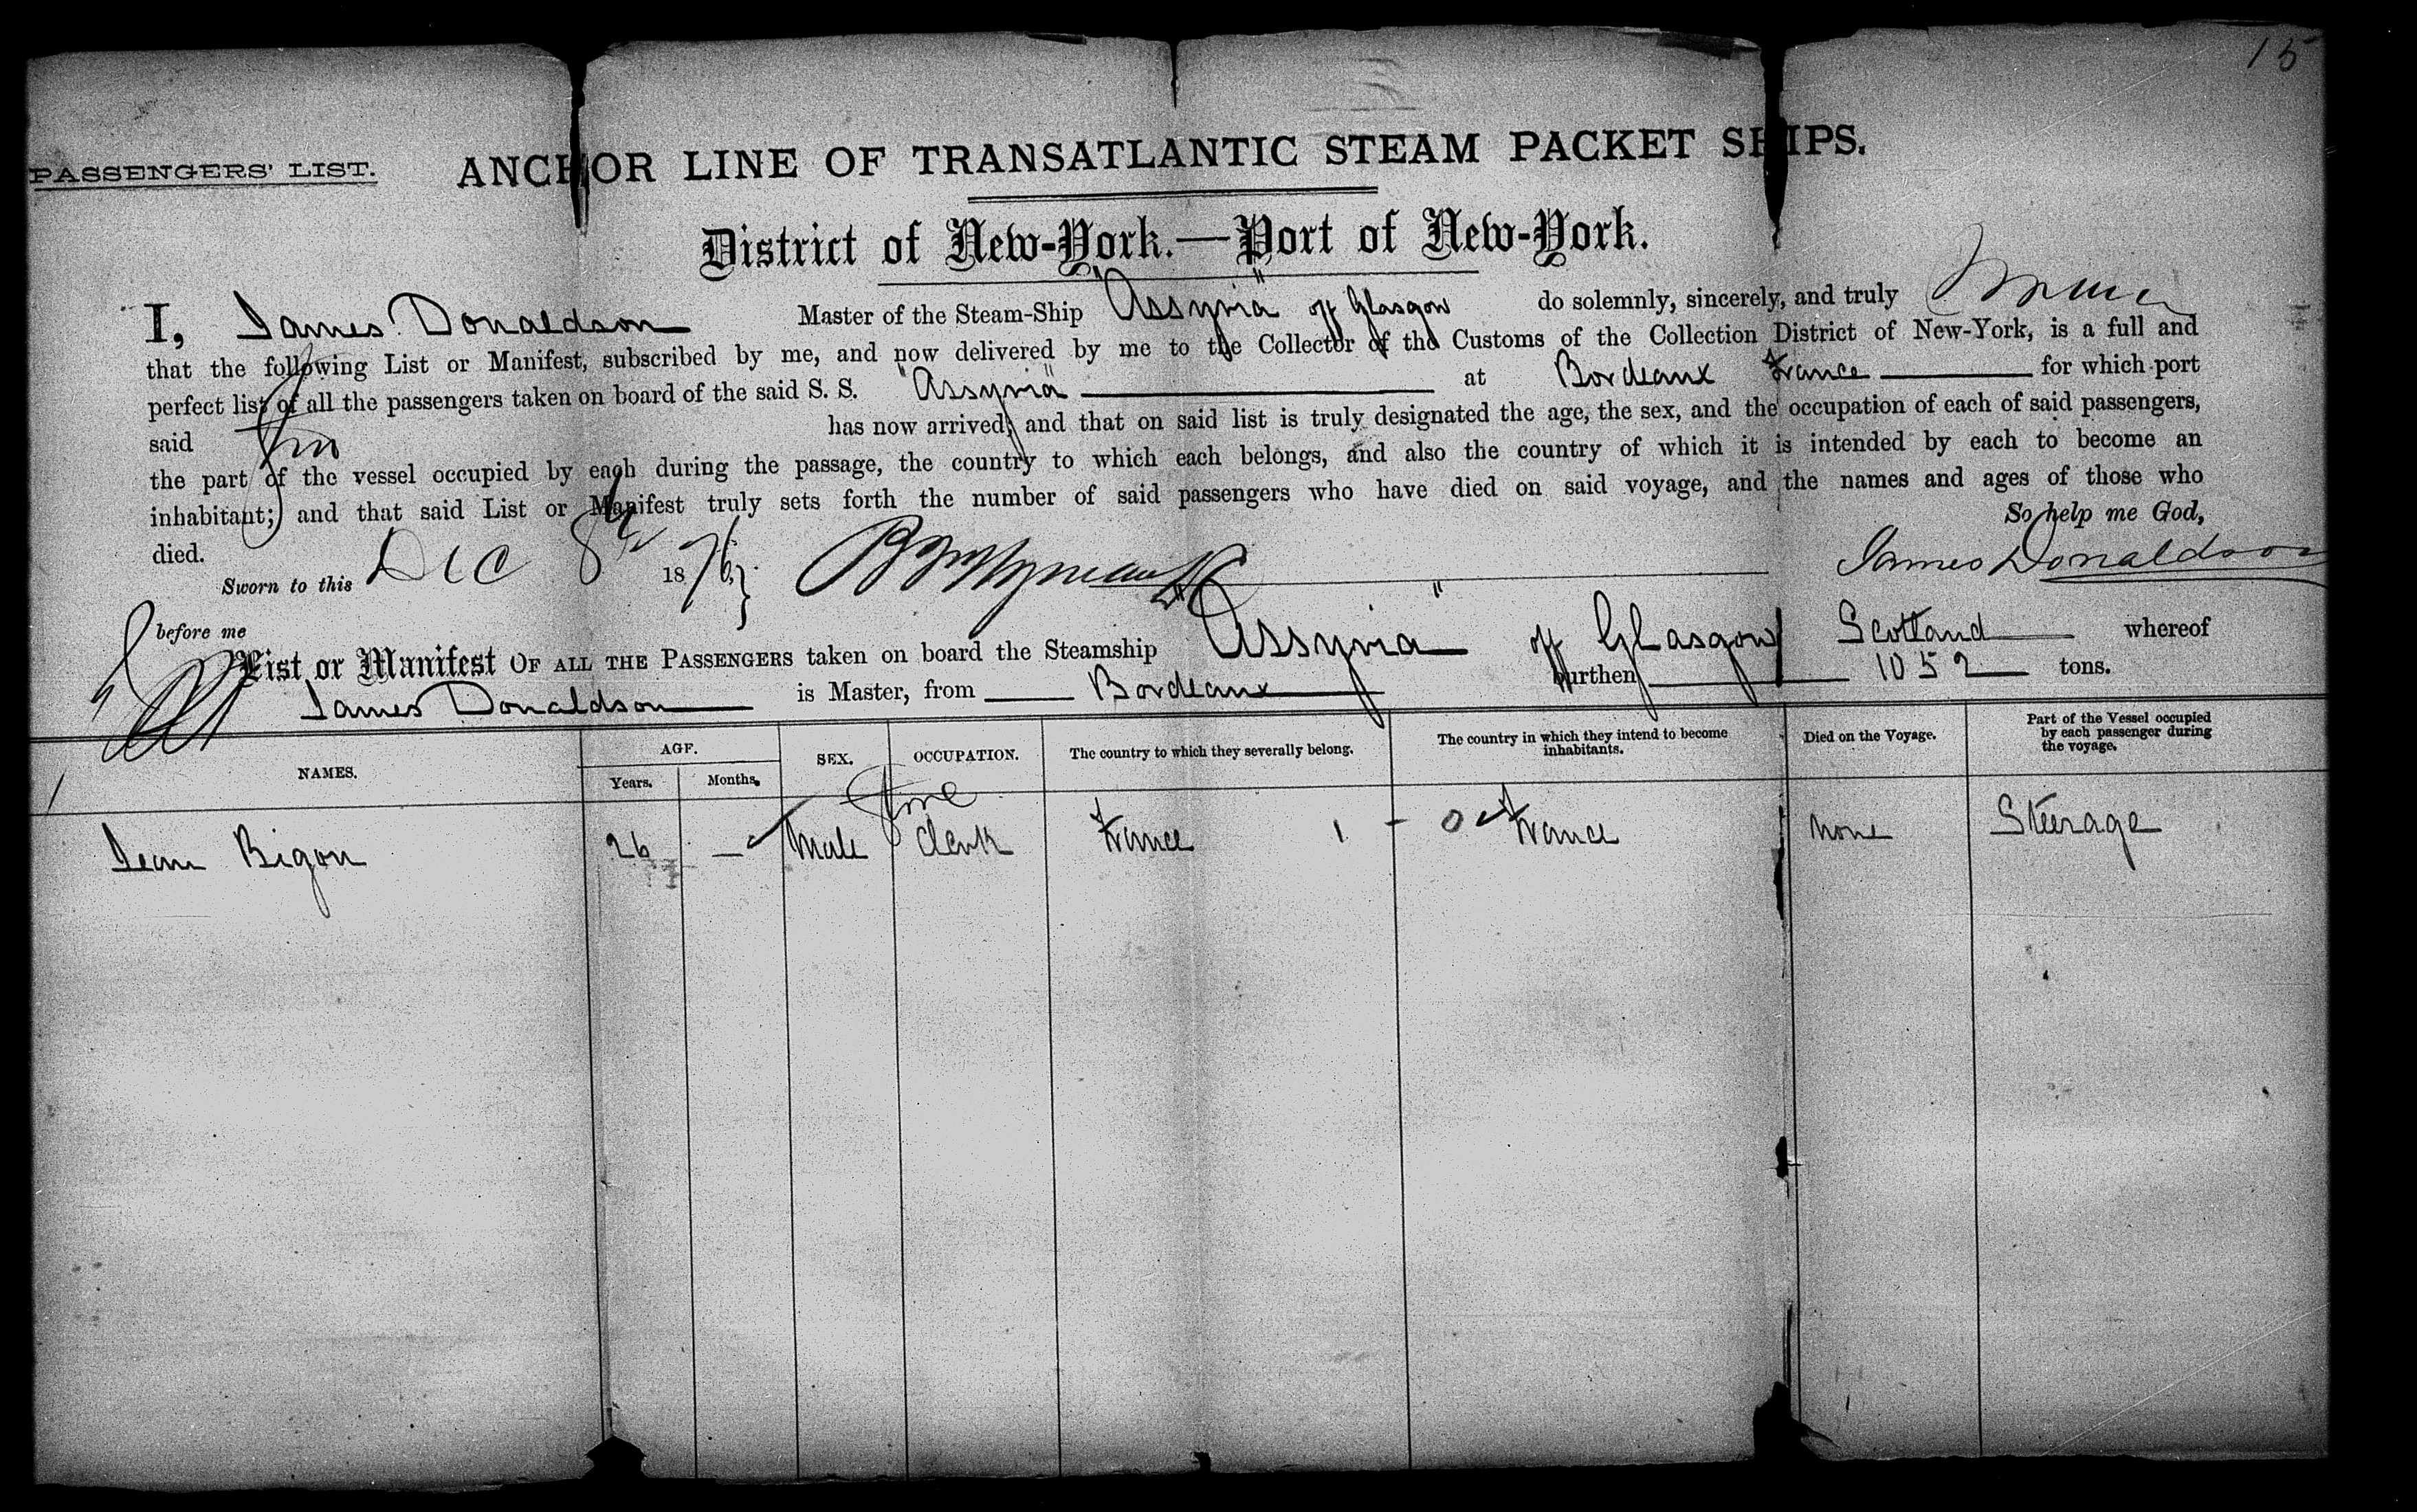 15
PASSENGERS' LIST. ANCHOR LINE OF TRANSATLANTIC STEAM PACKET SHIPS.
District of New-York.—Port of New-York.
I, James Donaldson Master of the Steam-Ship "Assyria" of Glasgow do solemnly, sincerely, and truly
that the following List or Manifest, subscribed by me, and now delivered by me to the Collector of the Customs of the Collection District of New-York, is a full and
perfect list of all the passengers taken on board of the said S. S. "Assyria" at Bordeaux France for which port
said has now arrived; and that on said list is truly designated the age, the sex, and the occupation of each of said passengers,
the part of the vessel occupied by each during the passage, the country to which each belongs, and also the country of which it is intended by each to become an
inhabitant; and that said List or Manifest truly sets forth the number of said passengers who have died on said voyage, and the names and ages of those who
died. So help me God,
Sworn to this Dec 8th 1876 } James Donaldson
before me
List or Manifest OF ALL THE PASSENGERS taken on board the Steamship "Assyria" of Glasgow Scotland whereof
James Donaldson is Master, from Bordeaux burthen 1052 tons.
NAMES. AGE. Years. Months. SEX. OCCUPATION. The country to which they severally belong. The country in which they intend to become inhabitants. Died on the Voyage. Part of the Vessel occupied by each passenger during the voyage.
Jean Bigon 26 — Male Clerk France 1 France none Steerage